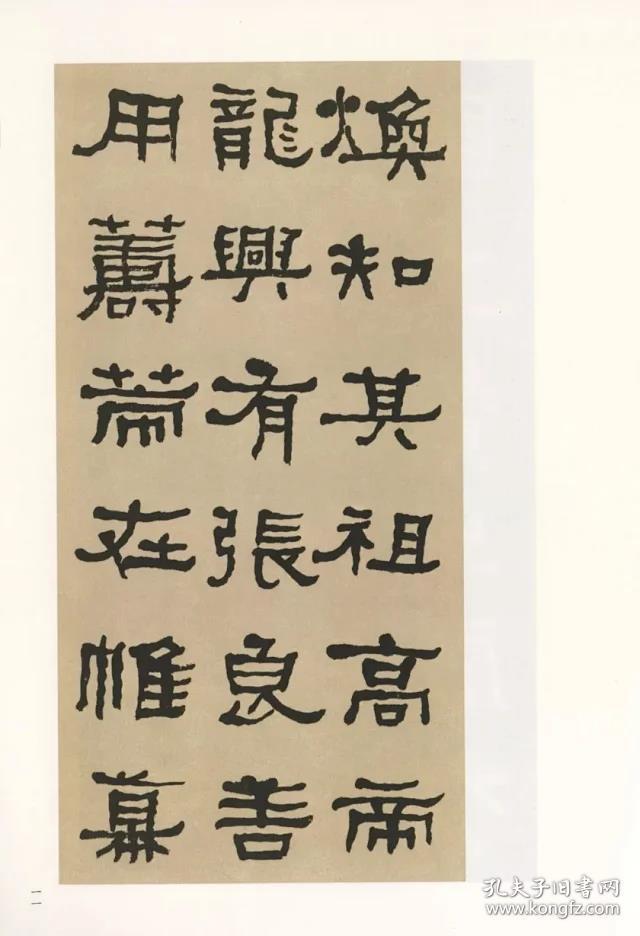 煥知其祖高帝
龍興有張良善
用籌策在帷幕
一一
孔夫子旧书网
www.kongfz.com